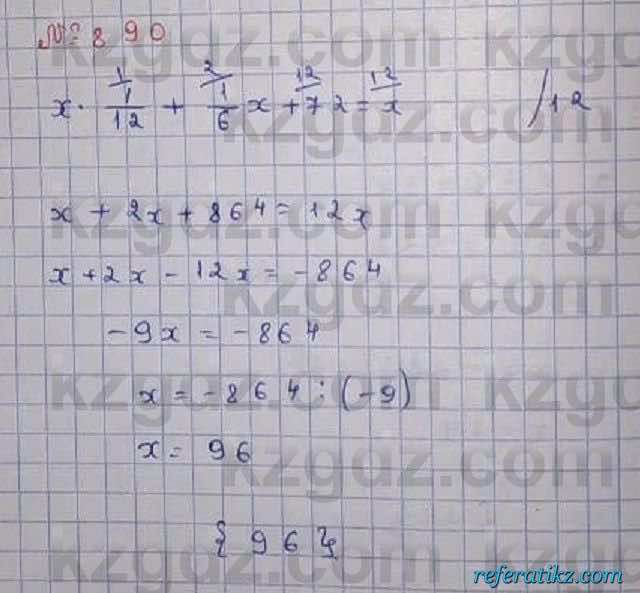 № 890
kzgdz.com
1 2 12 12
x · 1/12 + 1/6 x + 72 = x /12
x + 2x + 864 = 12x
x + 2x - 12x = -864
-9x = -864
x = -864 : (-9)
x = 96
{96}
referatikz.com